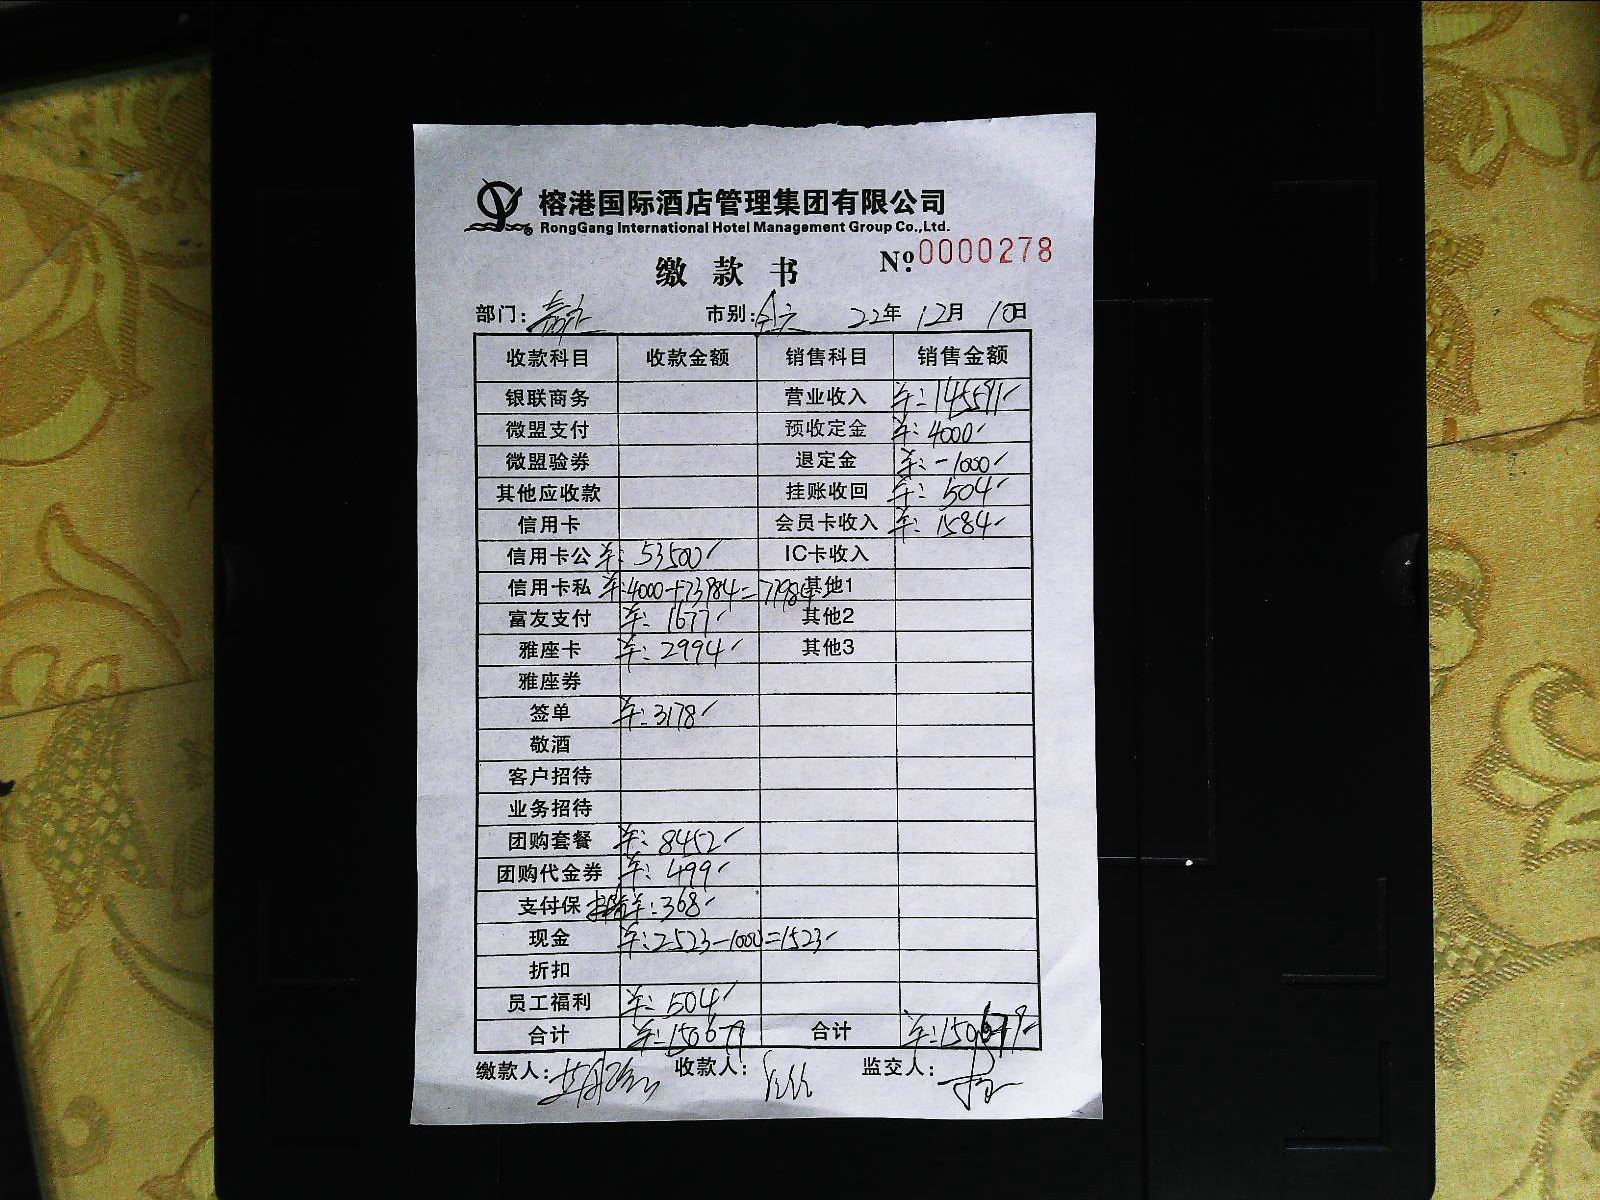 榕港国际酒店管理集团有限公司
RongGang International Hotel Management Group Co.,Ltd.
缴款书 Nº.0000278
部门: 市别: 22年 12月 10日
收款科目 收款金额 销售科目 销售金额
银联商务 营业收入 羊:145591
微盟支付 预收定金 羊:4000
微盟验券 退定金 羊:-1000
其他应收款 挂账收回 羊:504
信用卡 会员卡收入 羊:1584
信用卡公 羊:53500 IC卡收入
信用卡私 羊:4000+73984=77984 其他1
富友支付 羊:1677 其他2
雅座卡 羊:2994 其他3
雅座券
签单 羊:3178
敬酒
客户招待
业务招待
团购套餐 羊:8452
团购代金券 羊:499
支付保 羊:368
现金 羊:2523-1000=1523
折扣
员工福利 羊:504
合计 羊:150679 合计 羊:150679
缴款人: 收款人: 监交人: